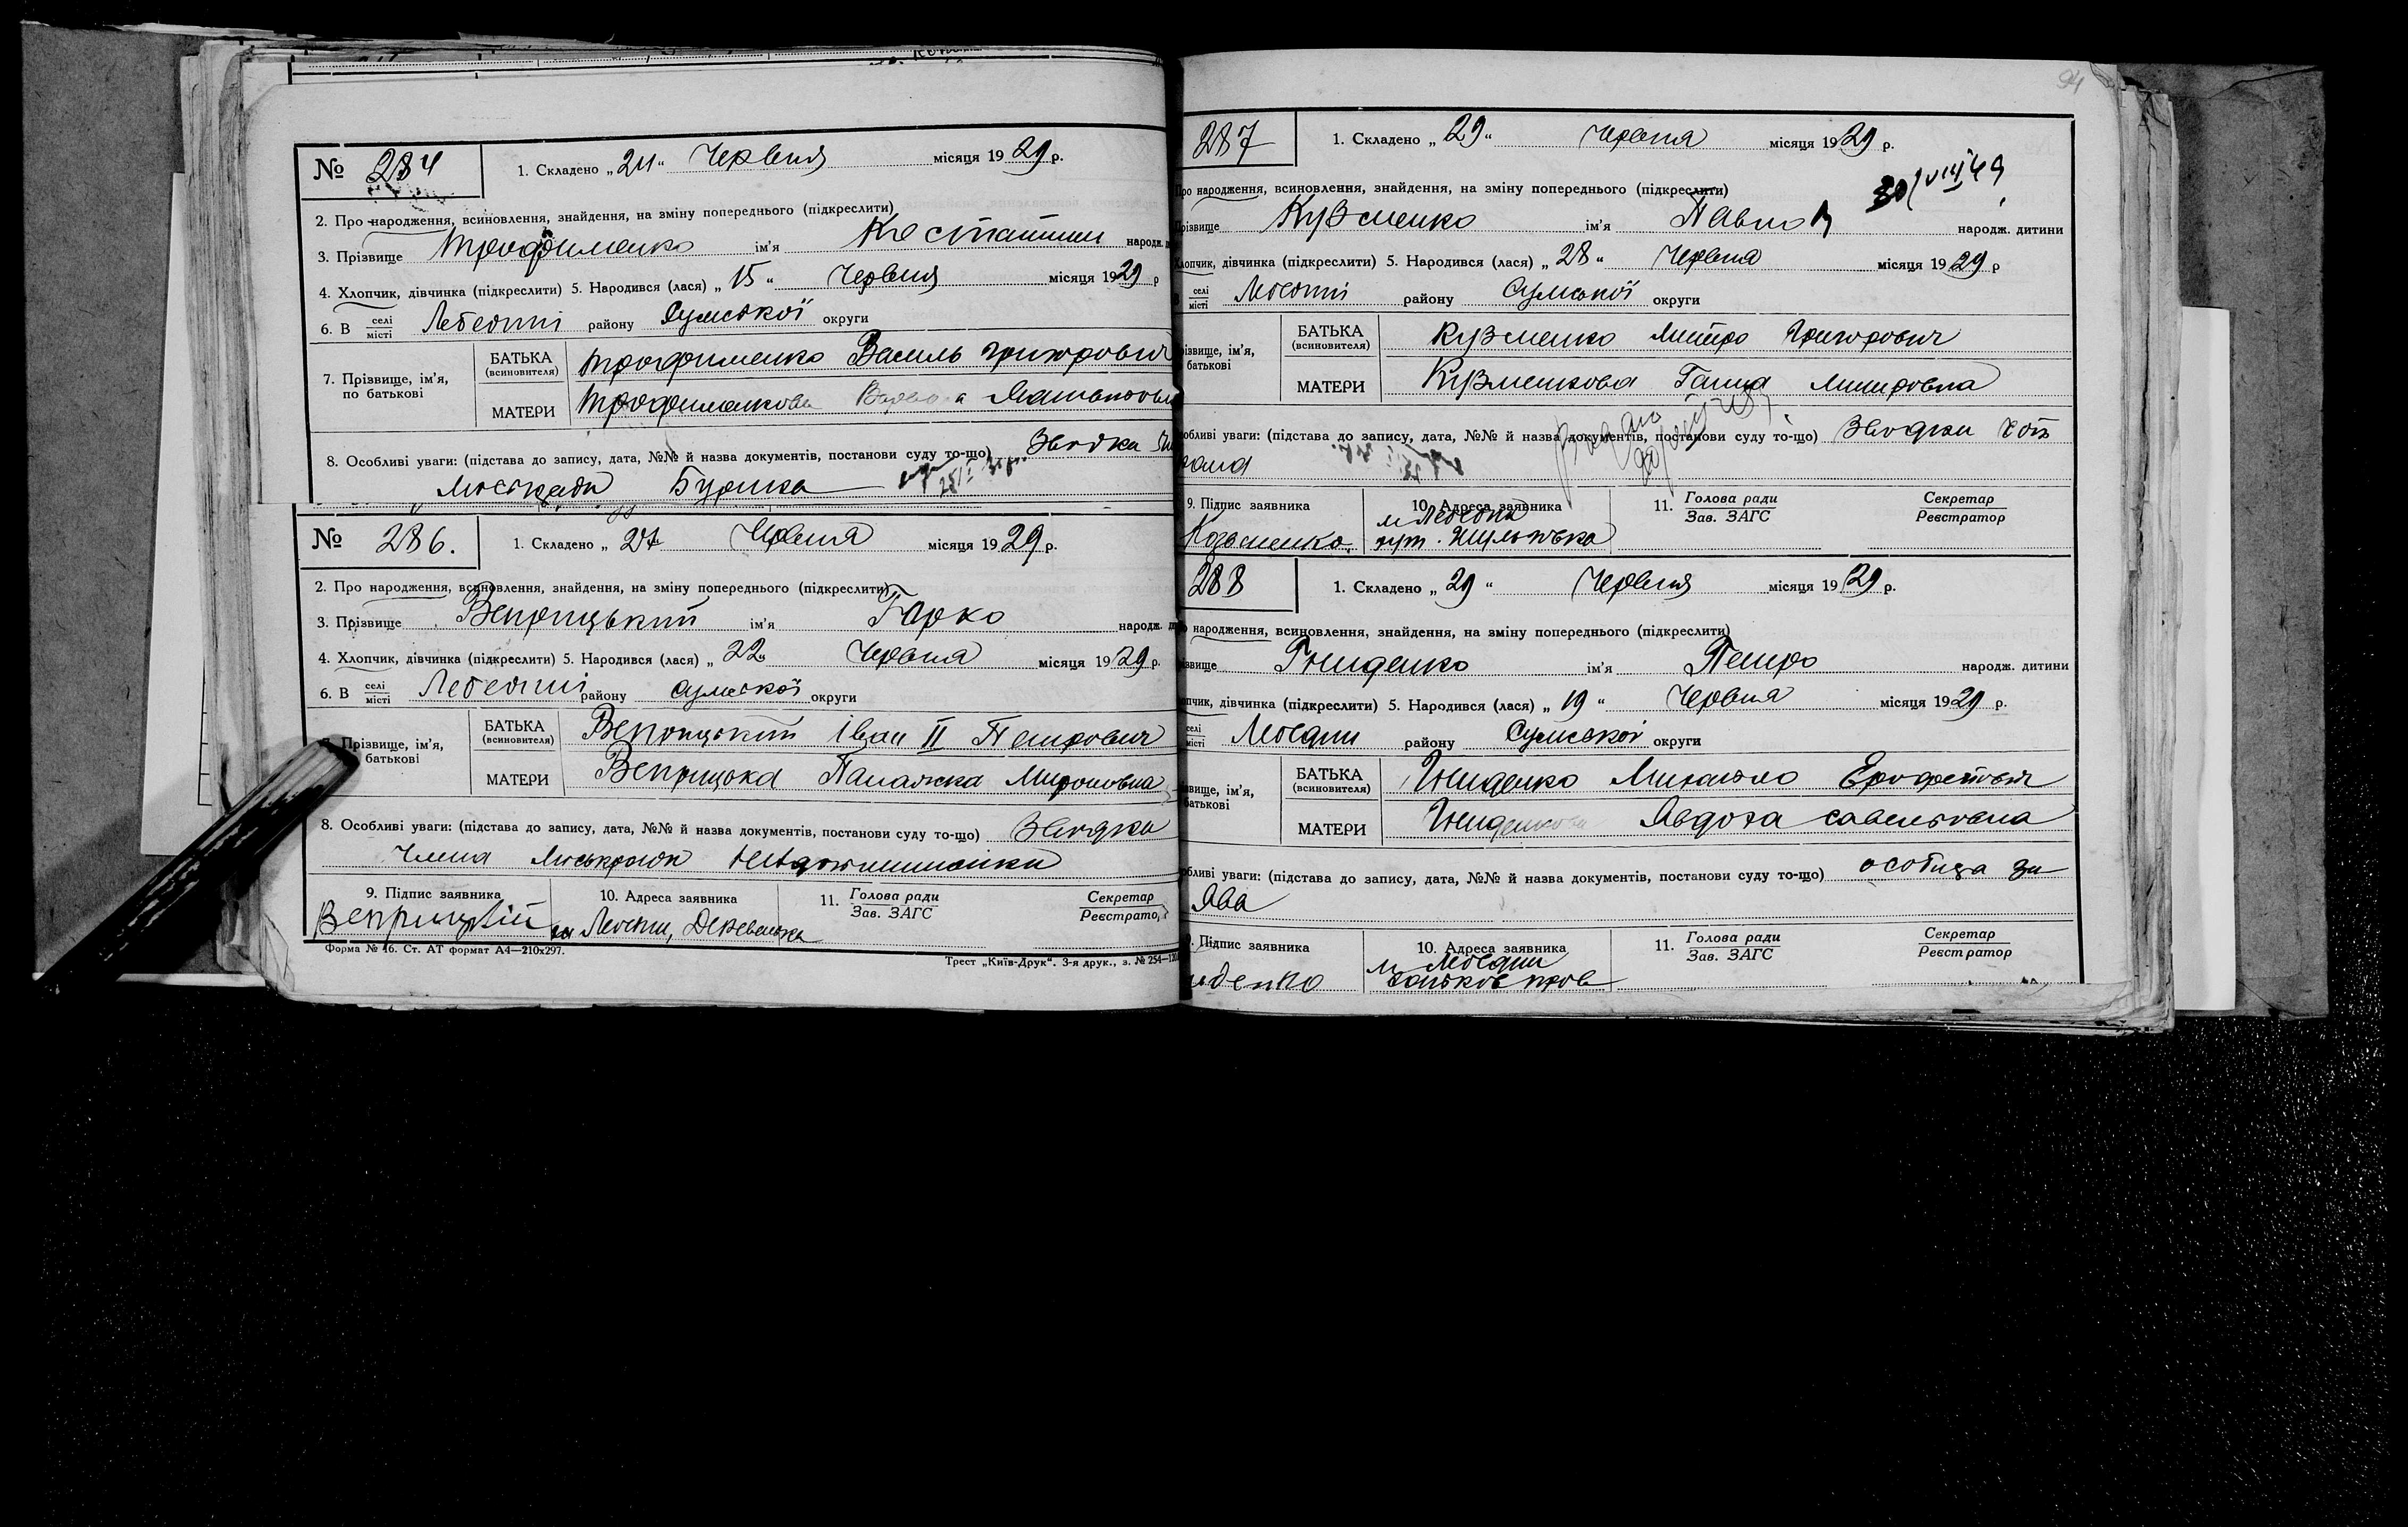 № 284
1. Складено „24“ Червня місяця 1929 р.
2. Про народження, всиновлення, знайдення, на зміну попереднього (підкреслити)
3. Прізвище Трофименко ім'я Костантин народж.
4. Хлопчик, дівчинка (підкреслити) 5. Народився (лася) „15“ Червня місяця 1929 р
6. В селі місті Лебедині району Сумської округи
7. Прізвище, ім'я, по батькові
БАТЬКА (всиновителя) Трофименко Василь Григорович
МАТЕРИ Трофименкова
8. Особливі уваги: (підстава до запису, дата, №№ й назва документів, постанови суду то-що) Звідка
Міськради Буряка
№ 286.
1. Складено „27 Червня місяця 1929 р.
2. Про народження, всиновлення, знайдення, на зміну попереднього (підкреслити)
3. Прізвище Веприцький ім'я Гарко народж.
4. Хлопчик, дівчинка (підкреслити) 5. Народився (лася) „22“ Червня місяця 1929 р.
6. В селі місті Лебедині району Сумської округи
Прізвище, ім'я, батькові
БАТЬКА (всиновителя) Веприцький Іван II Петрович
МАТЕРИ Веприцька Палажка Мироновна
8. Особливі уваги: (підстава до запису, дата, №№ й назва документів, постанови суду то-що) Звідки
Члена Міськради
9. Підпис заявника 10. Адреса заявника 11. Голова ради Зав. ЗАГС Секретар Реєстрато
Веприцький Деревенька
Форма № 46. Ст. АТ формат А4—210х297.
Трест „Київ-Друк“. 3-я друк., з. № 254—
94
287
1. Складено „29“ Червня місяця 1929 р.
Про народження, всиновлення, знайдення, на зміну попереднього (підкреслити) 30/VIII 49
Прізвище Кузменко ім'я Павло народж. дитини
Хлопчик, дівчинка (підкреслити) 5. Народився (лася) „28“ Червня місяця 1929 р
селі місті Лебедині району Сумської округи
різвище, ім'я, батькові
БАТЬКА (всиновителя) Кузменко Митро Григорович
МАТЕРИ Кузменкова Ганна
собливі уваги: (підстава до запису, дата, №№ й назва документів, постанови суду то-що) Звідки
9. Підпис заявника 10. Адреса заявника 11. Голова ради Зав. ЗАГС Секретар Реєстратор
288
1. Складено „29“ Червня місяця 1929 р.
народження, всиновлення, знайдення, на зміну попереднього (підкреслити)
ізвище Гниденко ім'я Петро народж. дитини
опчик, дівчинка (підкреслити) 5. Народився (лася) „19“ Червня місяця 1929 р.
селі місті Лебедин району Сумської округи
звище, ім'я, батькові
БАТЬКА (всиновителя) Гниденко Микола Ерофетович
МАТЕРИ Гниденкова Явдоха Савельовна
обливі уваги: (підстава до запису, дата, №№ й назва документів, постанови суду то-що) особиста за
ява
9. Підпис заявника 10. Адреса заявника 11. Голова ради Зав. ЗАГС Секретар Реєстратор
иденко м Лебедин